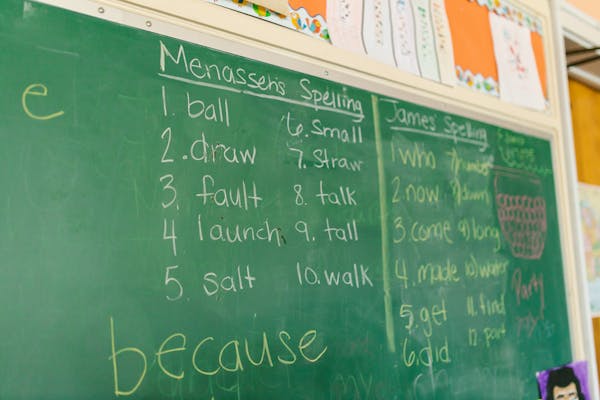 e
Menasseh's Spelling
1. ball
2. draw
3. fault
4 launch
5. salt
6. Small
7. Straw
8. talk
9. tall
10. walk
because
James' Spelling
1 who
2. now
3. come
4. made
5. get
6. did
7) number
8) down
9) long
10) water
11. find
12. part
Party